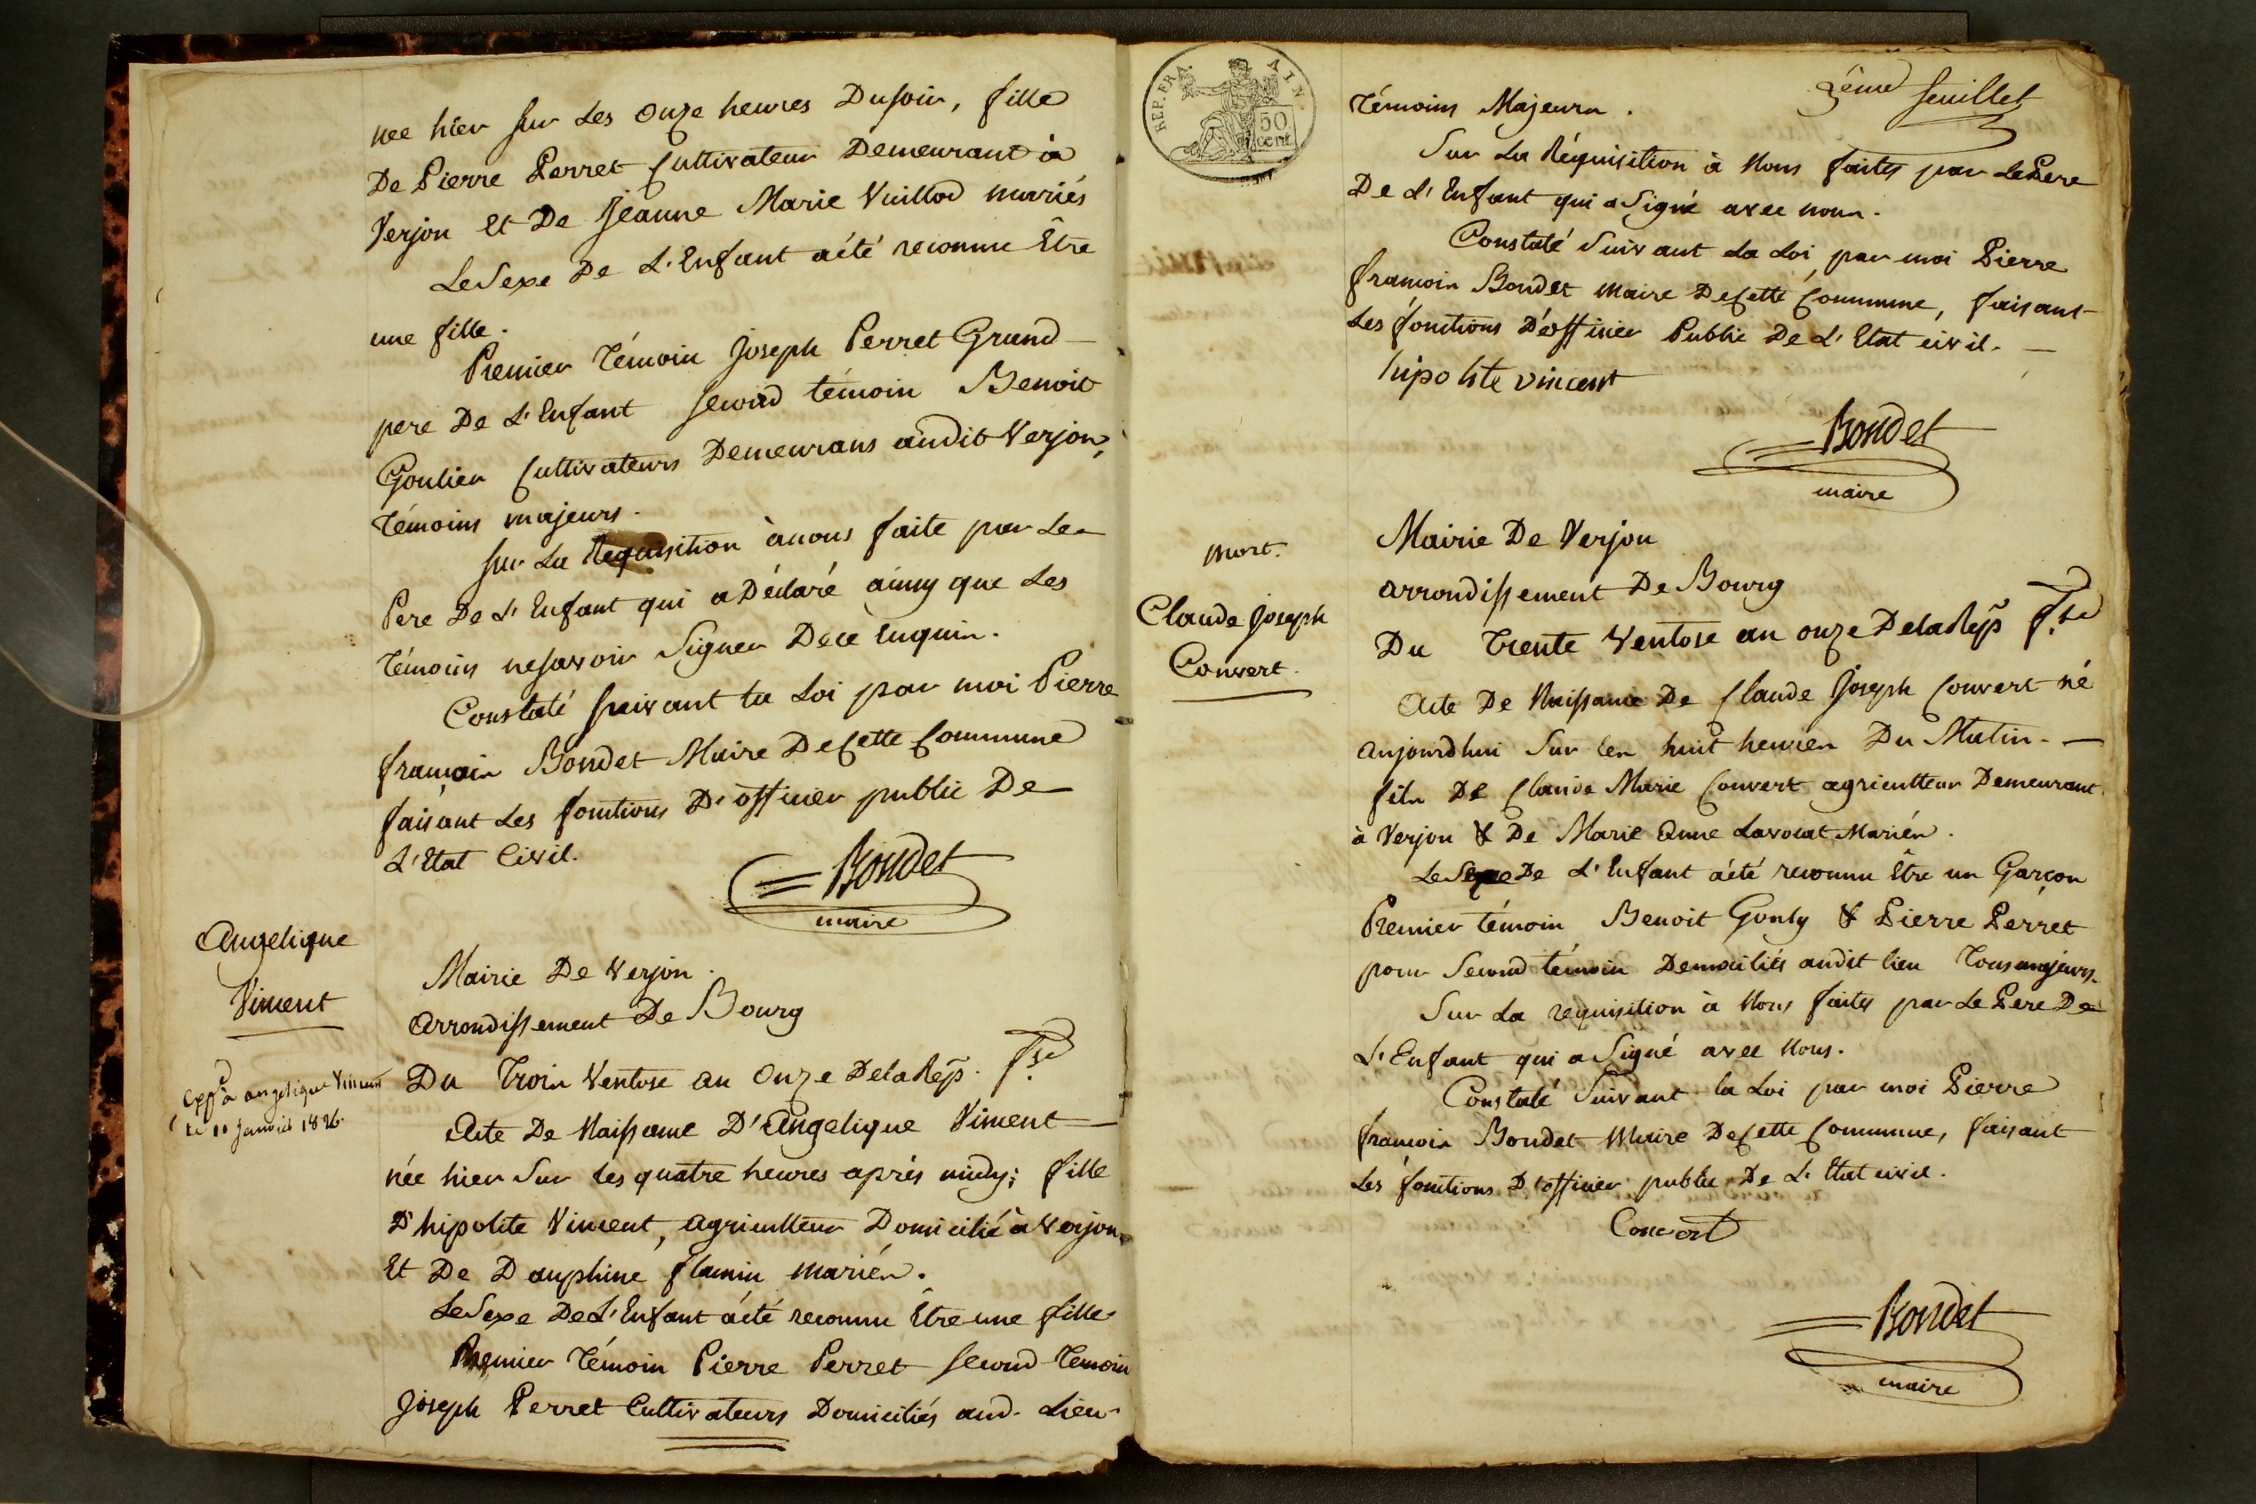 née hier sur Les onze heures Du soir, fille
De Pierre Perret Cultivateur Demeurant à
Verjon et De Jeanne Marie Vuillod mariés
Le Sexe De L'Enfant a été reconnu Être
une fille.
Premier Témoin Joseph Perret Grand
pere De L'Enfant second témoin Benoit
Goulier Cultivateurs Demeurans audit Verjon,
Témoins majeurs.
sur La Requisition à nous faite par Le
Pere De L'Enfant qui a Déclaré ainsy que Les
Témoins ne savoir Signer De ce Enquis.
Constaté suivant la Loi par moi Pierre
françois Bondet Maire De Cette Commune
faisant Les fonctions D'officier public De
L'Etat Civil.
Bondet
maire
Angelique
Vincent
Expé à angelique Vincent
Le 10 janvier 1826.
Mairie De Verjon.
Arrondissement De Bourg
Du Trois Ventose an Onze De la Rep. fse
Acte De Naissance D'Angelique Vincent
née hier Sur les quatre heures après midy; fille
D'hipolite Vincent, agriculteur Domicilié à Verjon
Et De Dauphine flamin mariés.
Le Sexe De L'Enfant a été reconnu Être une fille
Premier Témoin Pierre Perret second Temoin
Joseph Perret Cultivateurs Domiciliés aud. Lieu
REP. FRA. AIN.
50
cent
2ême feuillet
Témoins Majeurs.
Sur La Réquisition à Nous faites par Le Pere
De L'Enfant qui a Signé avec nous.
Constaté Suivant La Loi par moi Pierre
françois Bondet maire De Cette Commune, faisant
Les fonctions D'officier Public De L'Etat civil.
hipolite vincent
Bondet
maire
mort.
Claude Joseph
Convert.
Mairie De Verjon
arrondissement De Bourg
Du Trente Ventose an onze De la Rep fse
Acte De Naissance De Claude Joseph Convert né
aujourdhui Sur les huit heures Du Matin.
fils De Claude Marie Convert agriculteur Demeurant
à Verjon & De Marie Anne Lavocat Mariés.
Le Sexe De L'Enfant a été reconnu Être un Garçon
Premier témoin Benoit Gouly & Pierre Perret
pour Second témoin Demoiciliés audit lieu Tous majeurs.
Sur La requisition à Nous faites par Le Pere De
L'Enfant qui a Signé avec Nous.
Constaté Suivant la Loi par moi Pierre
françois Bondet Maire De Cette Commune, faisant
Les fonctions D'officier public De L'Etat civil.
Convert
Bondet
maire